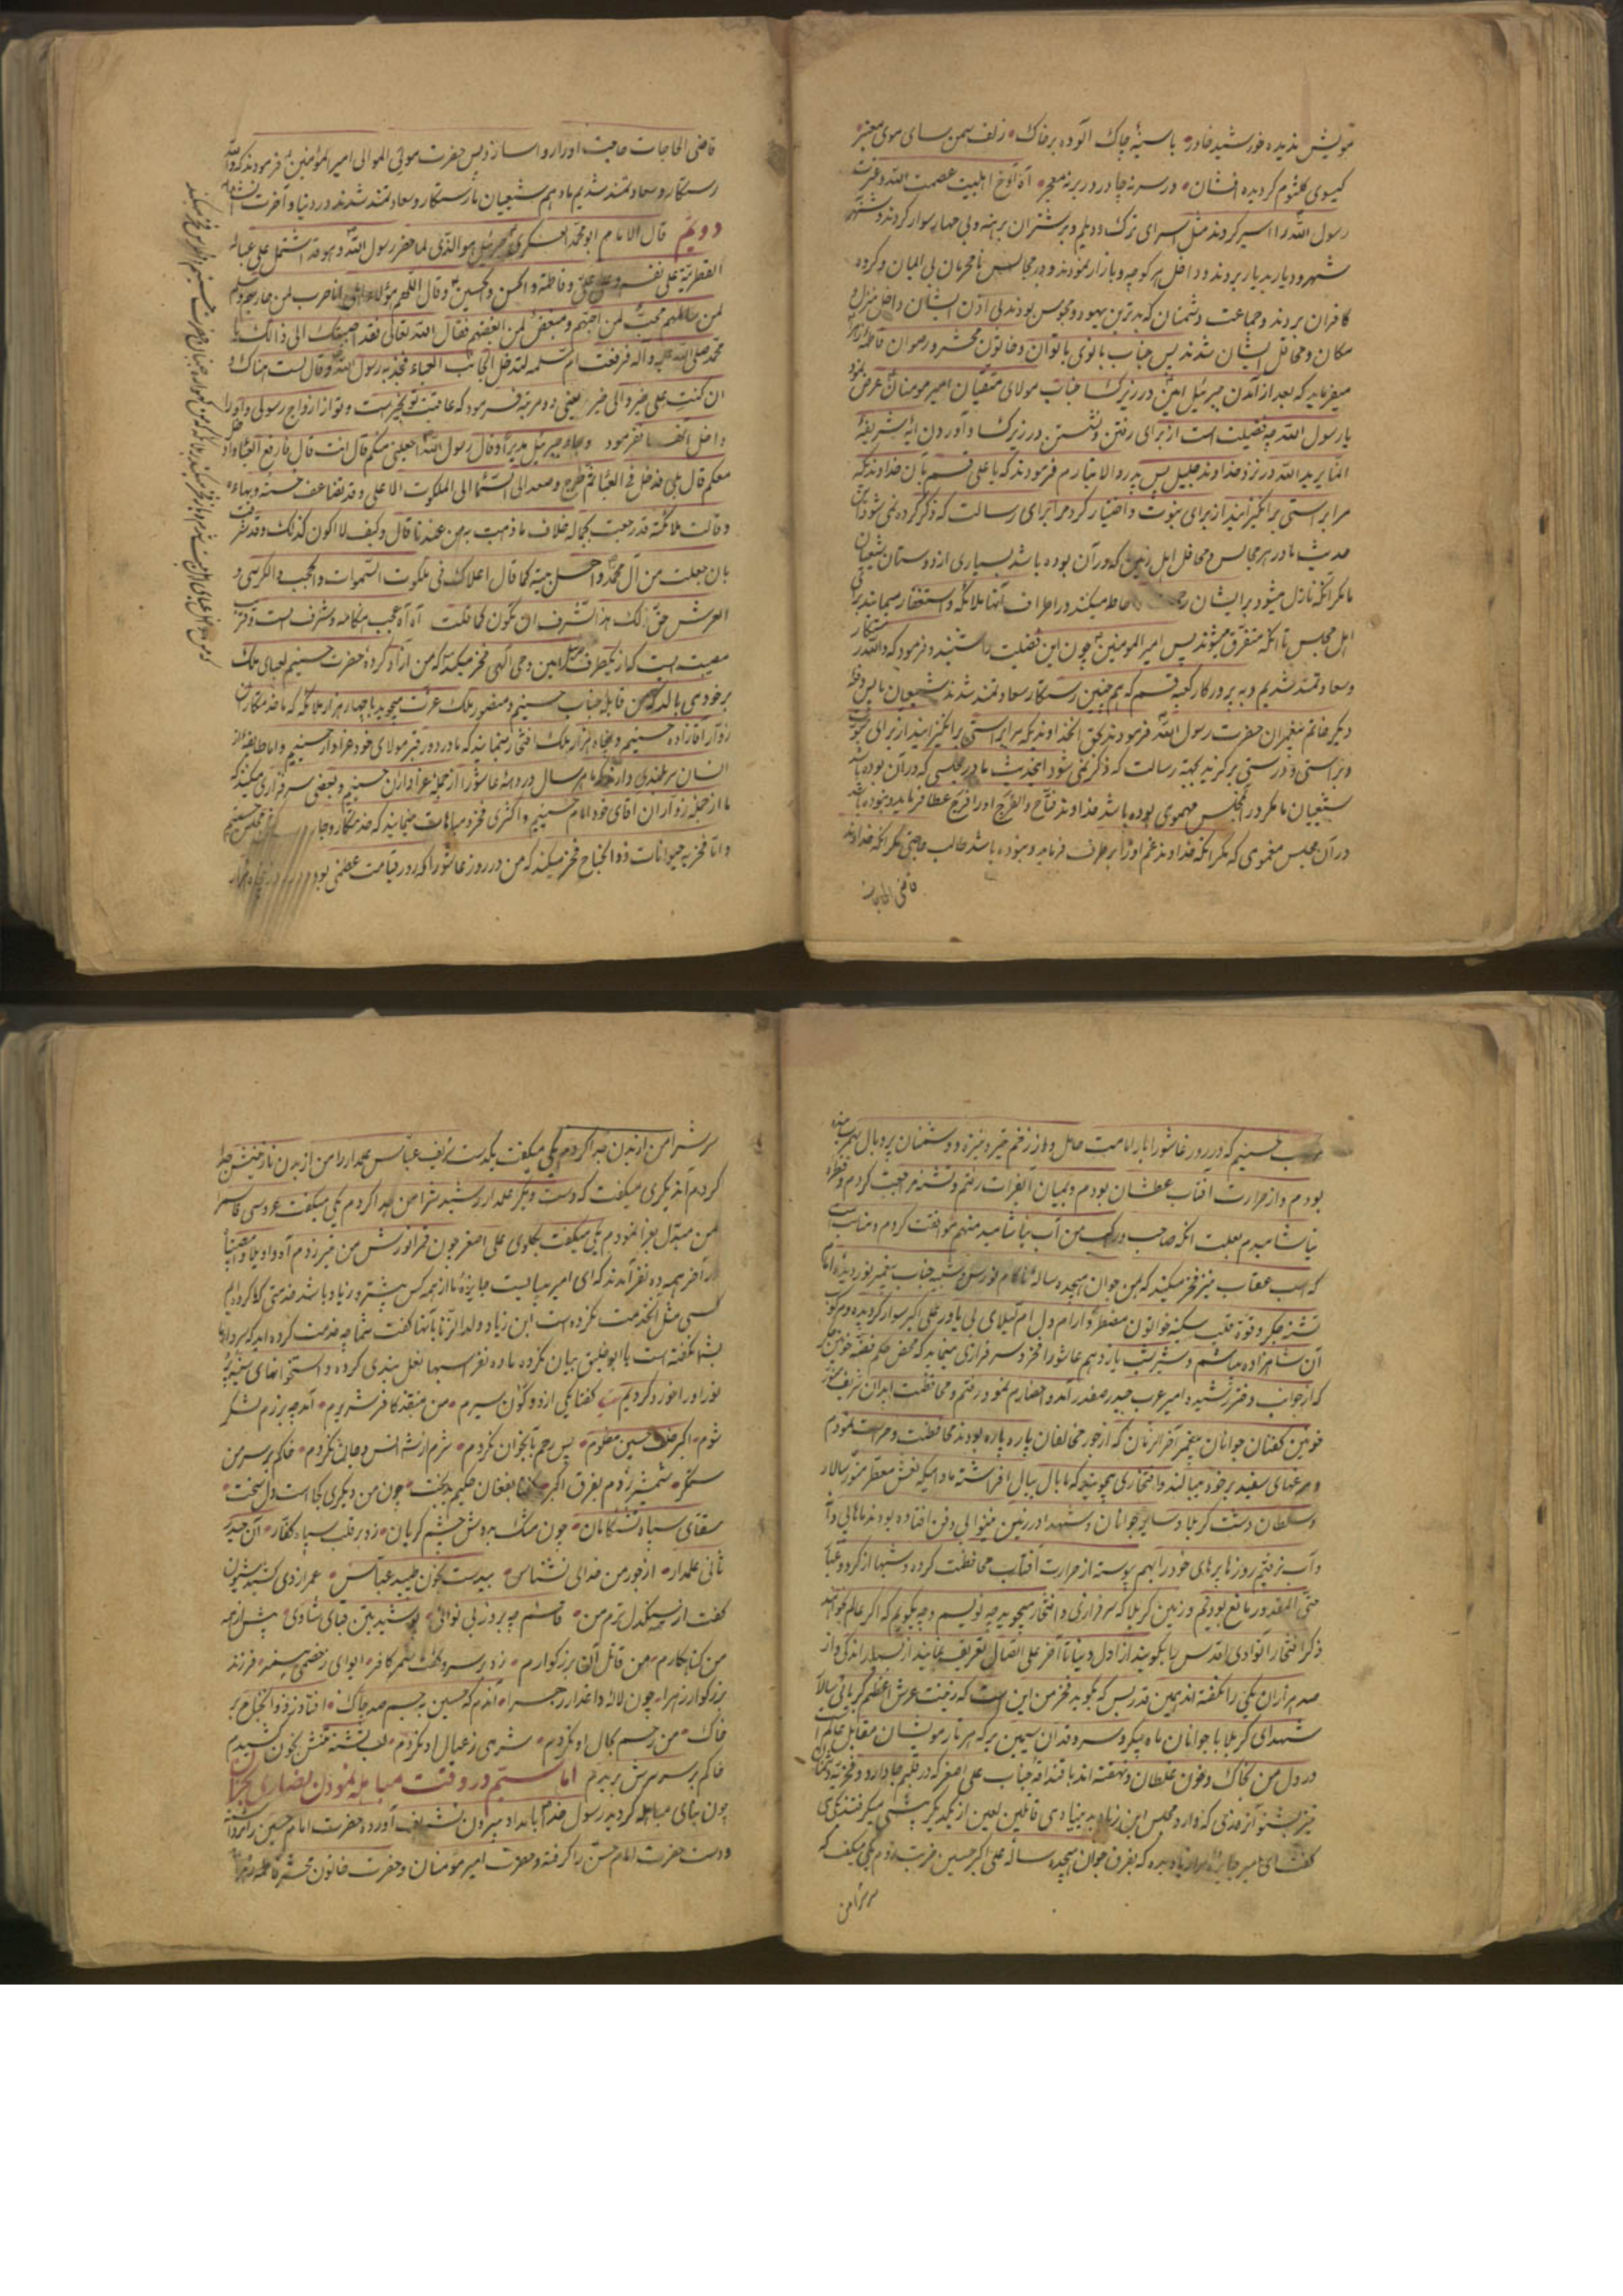 مویش ندیده خورشید خادر • باسینهٔ چاک آلوده برخاک • زلف سمن سای موی معنبر •
کیسوی کلثوم کردیده افشان • در سر نه چادر در بر نه معجر • آه آوخ اهلبیت عصمت الله وغیرت
رسول الله را اسیر کردند مثل اسرای ترک و دیلم و بر شتران برهنه و بی جهاز سوار کردند و شهر
شهر و دیار بدیار بردند و داخل هر کوچه و بازار نمودند و در مجالس نامحرمان بی ایمان و کروه
کافران بردند و جماعت دشمنان که بدترین یهود و مجوس بودند بی اذن ایشان داخل منزل و
مکان و محافل ایشان شدند پس جناب بانوی بانوان و خاتون محشر و رضوان فاطمه زهرا
میفرماید که بعد از آمدن جبرئیل امین در زیر کسا جناب مولای متقیان امیر مومنان عرض نمود
یا رسول الله چه فضیلت است از برای رفتن و نشستن در زیر کسا و آوردن ایهٔ شریفهٔ
انما یرید الله در نزد خداوند جلیل پس پدر والا تبارم فرمودند که یا علی قسم بآن خداوندیکه
مرا براستی برانکیزانید از برای نبوت و اختیار کرد مرا برای رسالت که ذکر کرده نمی شود این
حدیث ما در هر مجالس و محافل اهل زمین که در آن بوده باشد بسیاری از دوستان شیعیان
ما مکر آنکه نازل میشود برایشان رحمت و احاطه میکنند در اطراف آنها ملائکه و استغفار مینمایند برای
اهل مجلس تا آنکه متفرق میشوند پس امیر المومنین چون این فضیلت را شنیدند فرمود که والله رستکار
و سعادتمند شدیم و به پروردکار کعبه قسم که هم چنین رستکار سعادتمند شدند شیعیان ما پس دفعه
دیکر خاتم پیغمبران حضرت رسول الله فرمودند بحق انخداوندیکه مرا براستی برانکیزانید از برای نبوت
و براستی و درستی برکزید بجهة رسالت که ذکر نمی شود اینحدیث ما در مجلسی که در آن بوده باشد
شیعیان ما مکر در آنمجلس مهمومی بوده باشد خداوند فتاح والفرج اورا فرج عطا فرماید و نبوده باشد
در آن مجلس مغمومی که مکر آنکه خداوند غم او را برطرف فرماید و نبوده باشد طالب حاجتی مکر آنکه خداوند
قاضی الحاجات
قاضی الحاجات حاجت اورا روا سازد پس حضرت مولی الموالی امیر المؤمنین فرمودند که والله
رستکار و سعادتمند شدیم ما و هم شیعیان ما رستکار و سعادتمند شدند در دنیا و آخرت
دویم قال الامام ابو محمد العسکری جبرئیل هو الذی لما حضر رسول الله وهو قد اشتمل علی عبائه
القطریة علی نفسه وعلی علی وفاطمة والحسن والحسین وقال اللهم هؤلاء اهلی انا حرب لمن حاربهم و سلم
لمن سالمهم محب لمن احبهم ومبغض لمن ابغضهم فقال الله تعالی فقد اجبتک الی ذالک یا
محمد صلی الله علیه وآله فرفعت ام سلمه لتدخل الجانب العباء فجذبه رسول الله وقال لست هناک و
ان کنت علی خیر والی خیر یعنی دو مرتبه فرمود که عاقبت تو بخیر است و تو از ازواج رسولی و اورا
داخل نفرمود وجاء جبرئیل مدبرا وقال رسول الله اجعلنی منکم قال انت قال فارفع العباء وادخل
معکم قال بلی فدخل فی العباء ثم خرج وصعد الی السماء الی الملکوت الاعلی وقد تضاعف حسنه وبهاءه
وقالت ملائکة قد رجعت بجماله خلاف ما ذهبت به من عندنا قال وکیف لا اکون کذلک وقد شرفت
بان جعلت من آل محمد واهل بیته کما قال املاک فی ملکوت السموات والحجب والکرسی و
العرش حق لک هذا الشرف ان تکون کما قلت آه آه عجب هنکامه و شرف است و قرب
برخود می بالد که من قابله جناب حسینم و منصور ملک عزت میجوید با چهار هزار ملائکه که ما خدمتکاران
زوار آقازاده حسینیم و پنجاه هزار ملک افتخار مینمایند که ما در دور قبر مولای خود عزادار حسینیم و اما طایفه از
انسان سربلندی دارند که ما هر سال در دههٔ عاشورا از جمله عزاداران حسینیم و بعضی سرفرازی میکنند که
ما از جمله زواران آقای خود امام حسینیم و اکثری فخر و مباهات مینمایند که خدمتکار و
و اما فخریه حیوانات ذوالجناح فخر میکند که من در روز عاشورا که روز قیامت عظمی بود
مرکب حسینم که در روز عاشورا بار امامت حامل و از زخم تیر و نیزه و دشمنان پر و بال بهم رسیده
بودم و از حرارت افتاب عطشان بودم و بمیان آبفرات رفتم و تشنه مراجعت کردم و قطره
نیاشامیدم بعلت انکه صاحب و راکب من آب نیاشامید منهم موافقت کردم و مناسب است
که اسب عقاب نیز فخر میکند که من جوان هیجده سالهٔ ناکام نورس شبیه جناب پیغمبر نور دیدهٔ امام
تشنه جکر و قوة قلب سکینه خواتون مضطر و ارام دل ام لیلای بی یاور علی اکبر سوار کردیده مرکوب
آن شاهزاده میباشم و شیر شب یازدهم عاشورا فخر و سرفرازی مینماید که محض حکم فضه خواتون
که از جوانب دختر رشیده امیر عرب حیدر صفدر آمد و احضارم نمود رفتم و محافظت ابدان شریف
خونین کفنان جوانان پیغمبر آخر الزمان که از جور مخالفان پاره پاره بودند محافظت و حراست نمودم
و مرغهای سفید برخود میبالند و افتخاری میجویند که ما بال ببال افراشته مادامیکه نعش معطر منور سالار
و سلطان دشت کربلا و سایر جوانان و شهدا در زمین نینوا بی دفن افتاده بودند ما بی دانه
و آب نرفتیم روزها پرهای خود را بهم پیوسته از حرارت آفتاب محافظت کرده و شبها از کرد و غبار
حتی المقدور مانع بودیم و زمین کربلا که سرفرازی و افتخار میجوید چه نویسم و چه بکویم که اکر عالم خواهند
ذکر افتخار آنوادی اقدس را بکویند از اول دنیا تا آخر علی اتصال تعریف نمایند از بسیار اندکی و از
صد هزاران یکی را نکفته اند همین قدر بس که بکوید فخر من این است که زینت عرش اعظم کبریائی سالار
شهدای کربلا با جوانان ماه پیکر و سروقدان سیمین بر که هر تار مویشان مقابل عالم
در دل من بخاک و خون غلطان و نهفته اند با قنداقهٔ جناب علی اصغر که در قلبم جا دارد و فخریه دشمنان
نیز بشنو آنروزی که وارد مجلس ابن زیاد بد بنیاد می قاتلین لعین از یکدیکر پیشی میکرفتند یکی
کفت ای امیر جایزه مرا زیاد بده که بفرق جوان هیجده ساله علی اکبر حسین ضربت زدم یکی میکفت که
سرش را من
سرش را من از بدن جدا کردم یکی میکفت یکدست شریف عباس علمدار را من از بدن نازنینش جدا
کردم آندیکری میکفت که دست دیکر علمدار رشید را من جدا کردم یکی میکفت عروسی قاسم
من مبدل بعزا نمودم یکی میکفت بکلوی علی اصغر چون قرانورش من تیر زدم آه واویلا و مصیبتا
در آخر همه ده نفر آمدند که ای امیر میبایست جایزهٔ ما از همه کس بیشتر و زیاد باشد خدمتی که ما کرده ایم
کسی مثل آنخدمت نکرده است ابن زیاد ولد الزنا بآنها کفت شما چه خدمت کرده اید که سردار ما
بشما نکفته است یا ابو خلیق بیان نکرده ما ده نفر اسبها نعل بندی کرده و استخوانهای سینهٔ
نور اورا خورد کردیم کفتا یکی از دو کون سیرم • من منقذ کافر شریرم • آندم بر زم لشکر
شوم • اکبر خلف حسین مظلوم • پس رحم بآنجوان نکردم • شرم از شه انس و جان نکردم • خاکم بر سر من
ستمکر • شمشیر زدم بفرق اکبر • کفتا بفغان حکیم بدبخت • چون من دیکری کجاست دل سخت •
سقای سپاه تشنه کامان • چون مشک بدوش چشم کریان • زد بر قلب سپاه کفار • آن حیدر
ثانی علمدار • از جور من خدای نشناس • بیدست بخون طپید عباس • عمر ازدی کشید شیون
کفت از سنکدل ترم من • قاسم چه بروز بی نوائی • پوشید بتن قبای شادی • پیش از همه
من کنهکارم • من قاتل آن بزرکوارم • زد بر سر و کفت شمر کافر • ایوای ز خصمی پیمبر • فرزند
بزرکوار زهرا • چون لاله داغدار حمرا • آندم که حسین بجسم صد چاک • افتاد ز ذوالجناح بر
خاک • من رحم بحال او نکردم • شرمی ز عیال او نکردم • لب تشنه تنش بخون کشیدم
خاکم بر سر سرش بریدم اما سیم در وقت مباهله نمودن نصارای نجران
چون بنای مباهله کردید رسول خدا بامداد بیرون تشریف آورده حضرت امام حسین را
و دست حضرت امام حسن را کرفته و حضرت امیر مؤمنان و حضرت خاتون محشر فاطمه زهرا